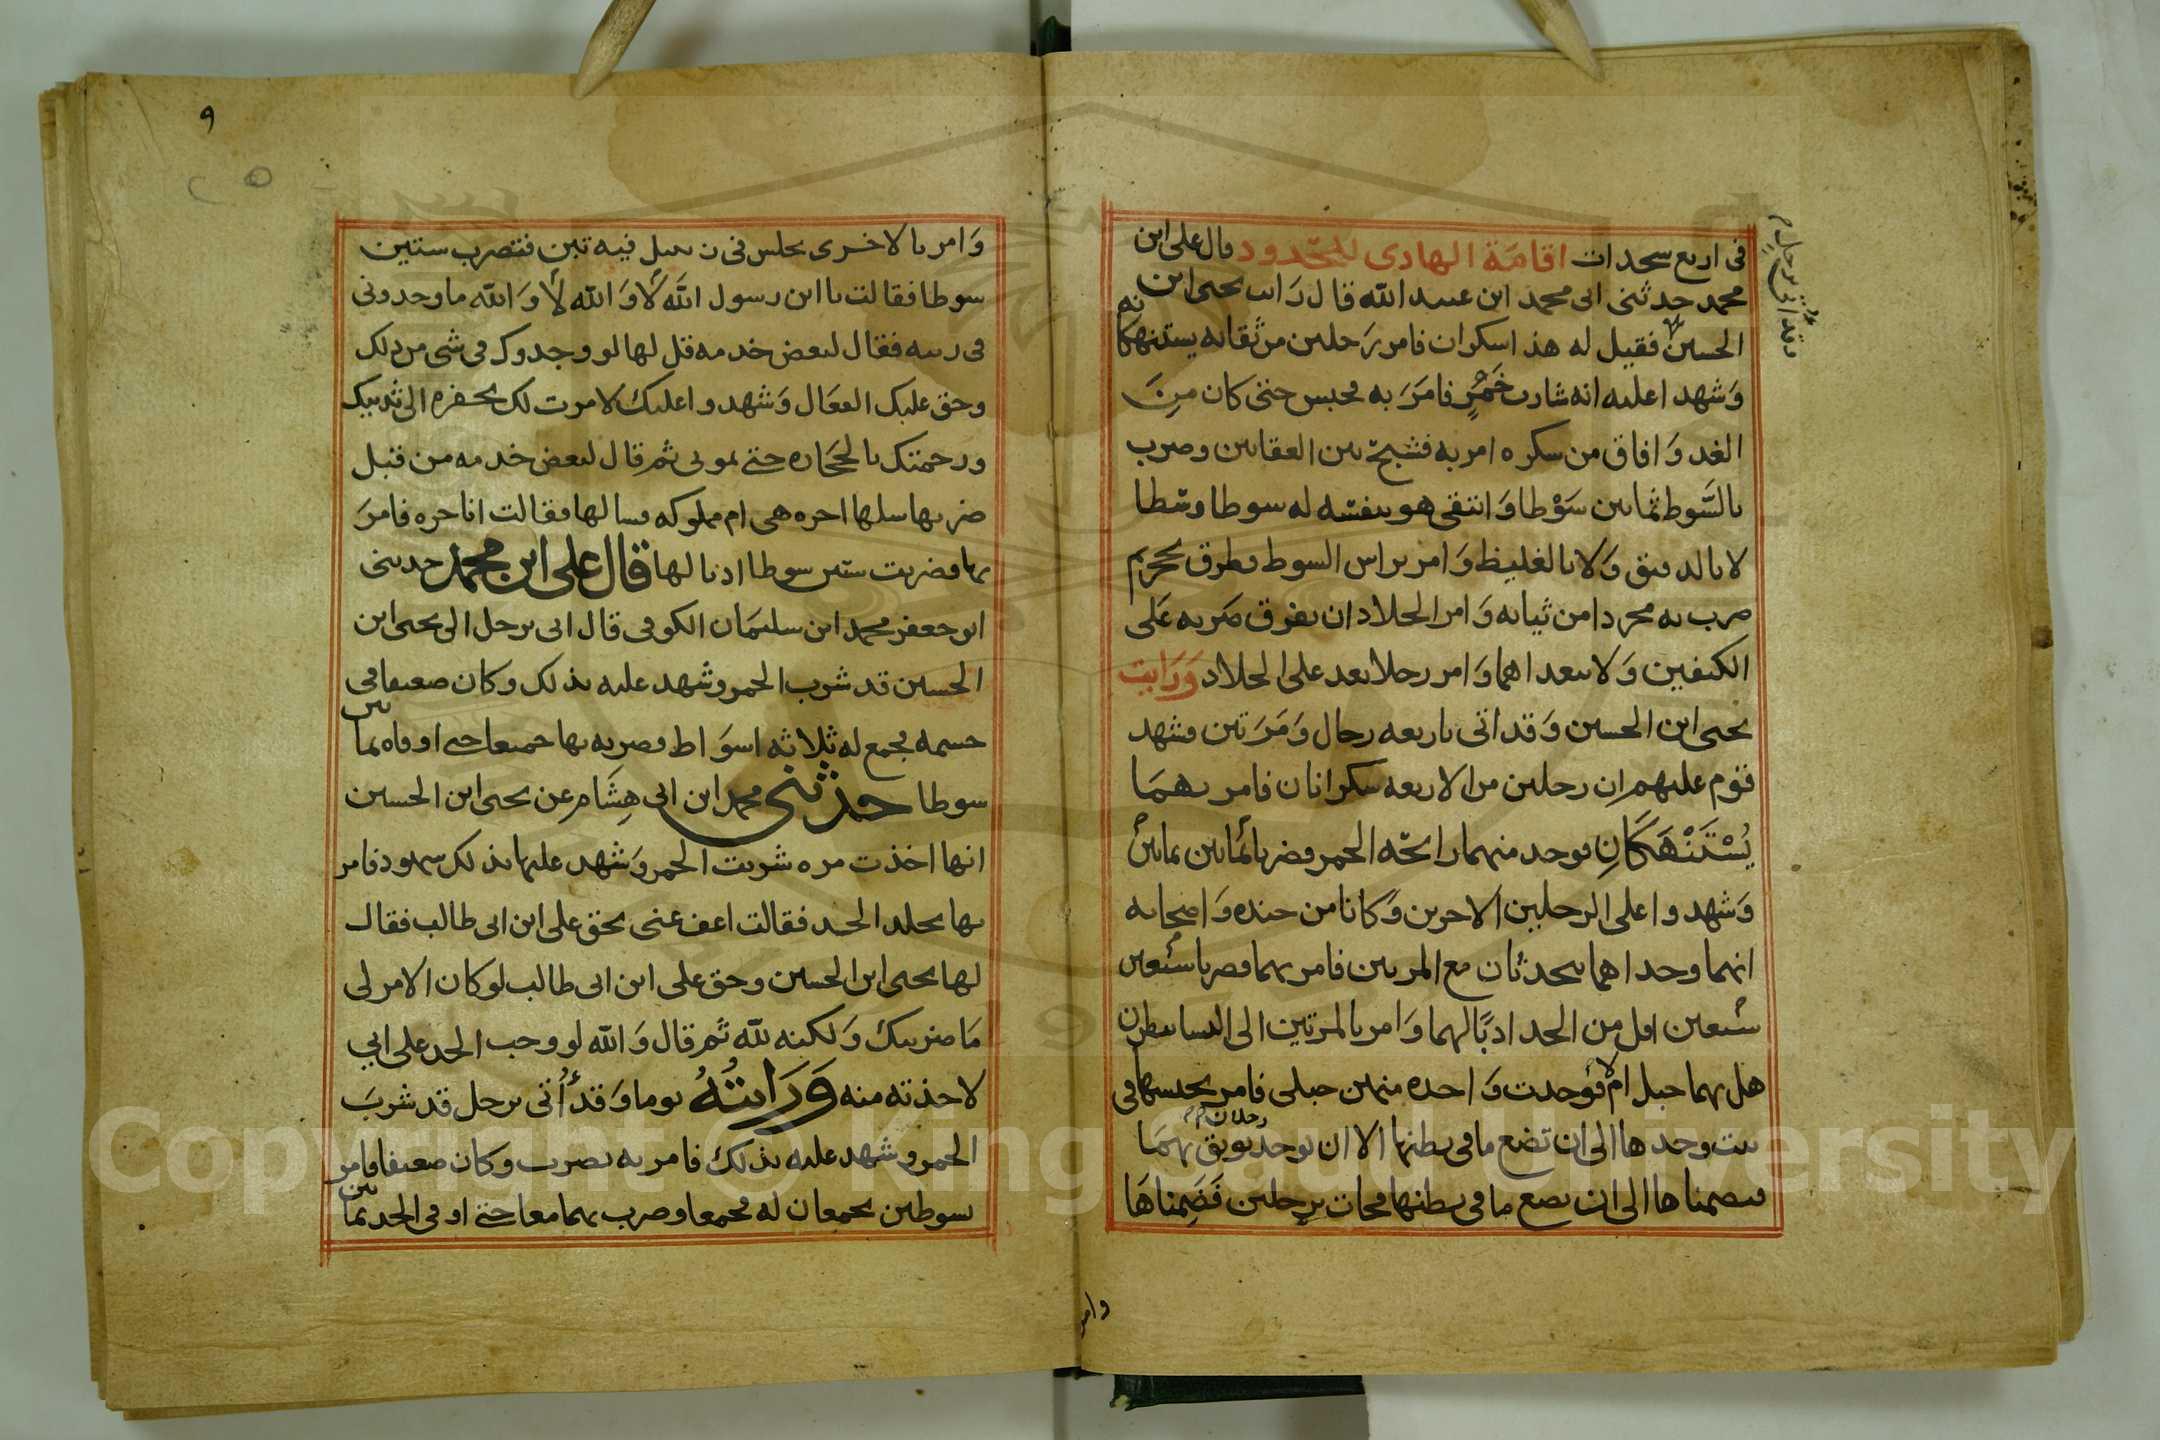 في اربع سجدات اقامة الهادي للحدود قال علي ابن
محمد حدثني ابي محمد ابن عبيد الله قال رايت يحيى ابن
الحسين فقيل له هذا سكران فامر رجلين من ثقاته يستنهكانه
وَشهدا عليه انه شارب خَمْرٍ فامَرَ به فحبس حتى كان مِنَ
الغد وَافاق من سكره امر به فشبح بين العقابين وضرب
بالسَّوط ثمانين سَوْطا وَانتقى هو بنفسه له سوطا وسطا
لا بالدقيق وَلا بالغليظ وَامر براس السوط فطرق بحجر ثم
ضرب به مجردا من ثيابه وَامر الجلاد ان يفرق ضربه عَلى
الكتفين وَلا يبعداهما وَامر رجلا يعد على الجلاد وَرَايت
يحيى ابن الحسين وَقد اتى باربعه رجال وَمَرَتين فشهد
قوم عليهم ان رجلين من الاربعه سكرانان فامر بهمَا
يُسْتَنْهَكَانِ فوجد منهما رائحة الخمر فضربا ثمانين ثمانين
وَشهدوا على الرجلين الاخرين وَكانا من جنده وَاصحابه
انهما وجداهما يتحدثان مع المرتين فامر بهما فضربا سبعين
سبعين اقل من الحد ادبًا لهما وَامر بالمرتين الى النسا ينظرن
هل بهما حبل ام لا فوجدت وَاحده منهن حبلى فامر بحبسها في
بيت وحدها الى ان تضع ما في بطنها الا ان يوجد رجلان يوثق بهمَا
فيضمناها الى ان تضع ما في بطنها فجات برجلين فَضَمِناهَا
وامر
٩
وَامر بالاخرى تجلس في زنبيل فيه تبن فتضرب ستين
سوطا فقالت يا ابن رسول الله لا وَالله لا وَالله ما وجدوني
في ريبه فقال لبعض خدمه قل لها لو وجدوك في شي من ذلك
وحق عليك الفعَال وَشهدوا عليك لامرت لك بحفره الى ثدييك
ورجمتك بالحجاره حتى تموتي ثم قال لبعض خدمه من قبل
ضربها سلها احره هي ام مملوكه فسالها فقالت انا حره فامرَ
بها فضربت ستين سوطا ادبا لها قال علي ابن محمد حدثني
ابو جعفر محمد ابن سليمَان الكوفي قال اتي برجل الى يحيى ابن
الحسين قد شرب الخمر وشهد عليه بذلك وكان ضعيفا في
جسمه فجمع له ثلاثه اسوَاط وضربه بها جميعا حتى اوفاه ثمانين
سوطا حدثني محمد ابن ابي هِشَام عن يحيى ابن الحسين
انها اخذت مره شربت الخمر وَشهد عليها بذلك شهود فامر
بها بجلد الحد فقالت اعف عني بحق علي ابن ابي طالب فقال
لها يحيى ابن الحسين وحق علي ابن ابي طالب لو كان الامر لي
مَا ضربتك وَلكنه لله ثم قال وَالله لو وجب الحد على ابي
لاخذته منه وَرَايتُهُ يوما وَقد اُتي برجل قد شربَ
الخمر وشهد عليه بذلك فامر به يضرب وكان ضعيفا فامر
بسوطين يجمعان له فجمعا وضرب بهما معا حتى اوفي الحد ثمانين
Copyright © King Saud University